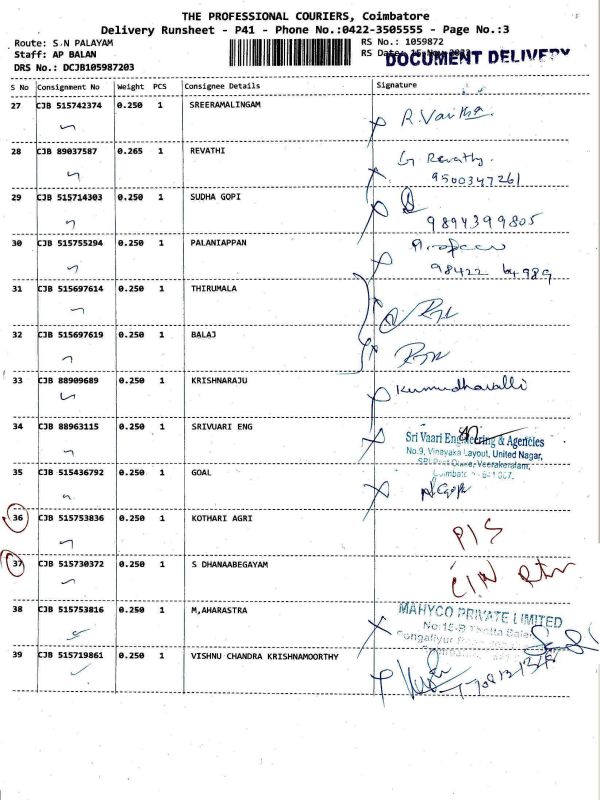 THE PROFESSIONAL COURIERS, Coimbatore
Delivery Runsheet - P41 - Phone No.:0422-3505555 - Page No.:3
Route: S.N PALAYAM
RS No.: 1059872
Staff: AP BALAN
RS Date:
DOCUMENT DELIVERY
DRS No.: DCJB105987203
S No Consignment No Weight PCS Consignee Details Signature
27 CJB 515742374 0.250 1 SREERAMALINGAM
28 CJB 89037587 0.265 1 REVATHI G. Revathy.
9500347261
29 CJB 515714303 0.250 1 SUDHA GOPI
9894399805
30 CJB 515755294 0.250 1 PALANIAPPAN
98422 64989
31 CJB 515697614 0.250 1 THIRUMALA
32 CJB 515697619 0.250 1 BALAJ
33 CJB 88909689 0.250 1 KRISHNARAJU Kumudhavalli
34 CJB 88963115 0.250 1 SRIVUARI ENG Sri Vaari Engineering & Agencies
No.9, Vinayaka Layout, United Nagar,
Veerakeralam,
35 CJB 515436792 0.250 1 GOAL
36 CJB 515753836 0.250 1 KOTHARI AGRI P/S
37 CJB 515730372 0.250 1 S DHANAABEGAYAM
38 CJB 515753816 0.250 1 M,AHARASTRA MAHYCO PRIVATE LIMITED
39 CJB 515719861 0.250 1 VISHNU CHANDRA KRISHNAMOORTHY